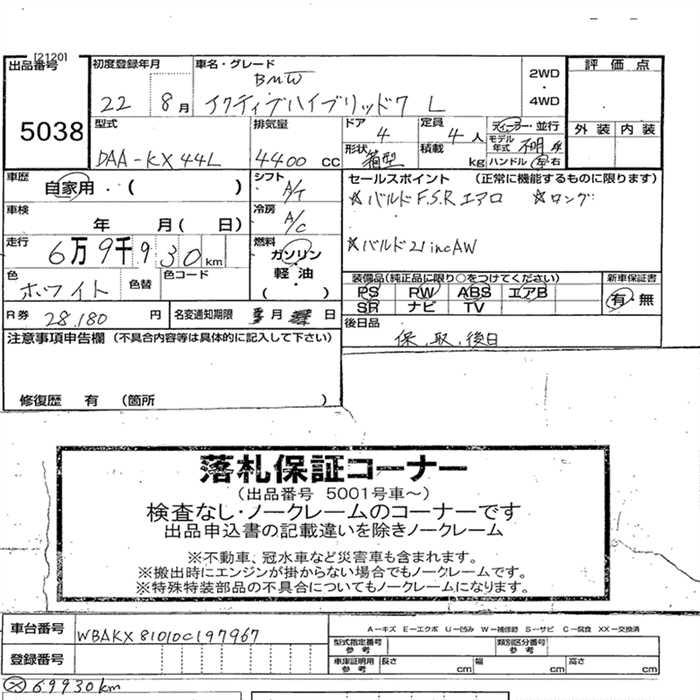 [2120]
出品番号
5038
初度登録年月
22 8月
車名・グレード
BMW
アクティブハイブリッド7 L
2WD
・
4WD
評価点
外装 内装
型式
DAA-KX44L
排気量
4400cc
ドア 4
形状 箱型
定員 4人
積載 kg
ディーラー・並行
モデル年式 不明 年
ハンドル 左 右
車歴
自家用・( )
シフト
A/T
セールスポイント (正常に機能するものに限ります)
☆バルドF.S.Rエアロ ☆ロング
☆バルド21incAW
車検
年 月( 日)
冷房
A/C
走行
6万9千930km
燃料
ガソリン
・
軽・油
( )
色
ホワイト
色替
色コード
装備品(純正品に限り○をつけてください)
PS PW ABS エアB
SR ナビ TV
新車保証書
有・無
R券
28,180円
名変通知期限 月 日
後日品
保、取、後日
注意事項申告欄 (不具合内容等は具体的に記入して下さい)
修復歴 有 (箇所 )
落札保証コーナー
(出品番号 5001号車~)
検査なし・ノークレームのコーナーです
出品申込書の記載違いを除きノークレーム
※不動車、冠水車など災害車も含まれます。
※搬出時にエンジンが掛からない場合でもノークレームです。
※特殊特装部品の不具合についてもノークレームになります。
車台番号
WBAKX81010C197967
A-キズ E-エクボ U-凹み W-補修跡 S-サビ C-腐食 XX-交換済
型式指定番号
参考
類別区分番号
参考
登録番号
車庫証明用
参考
長さ cm 幅 cm 高さ cm
69930km